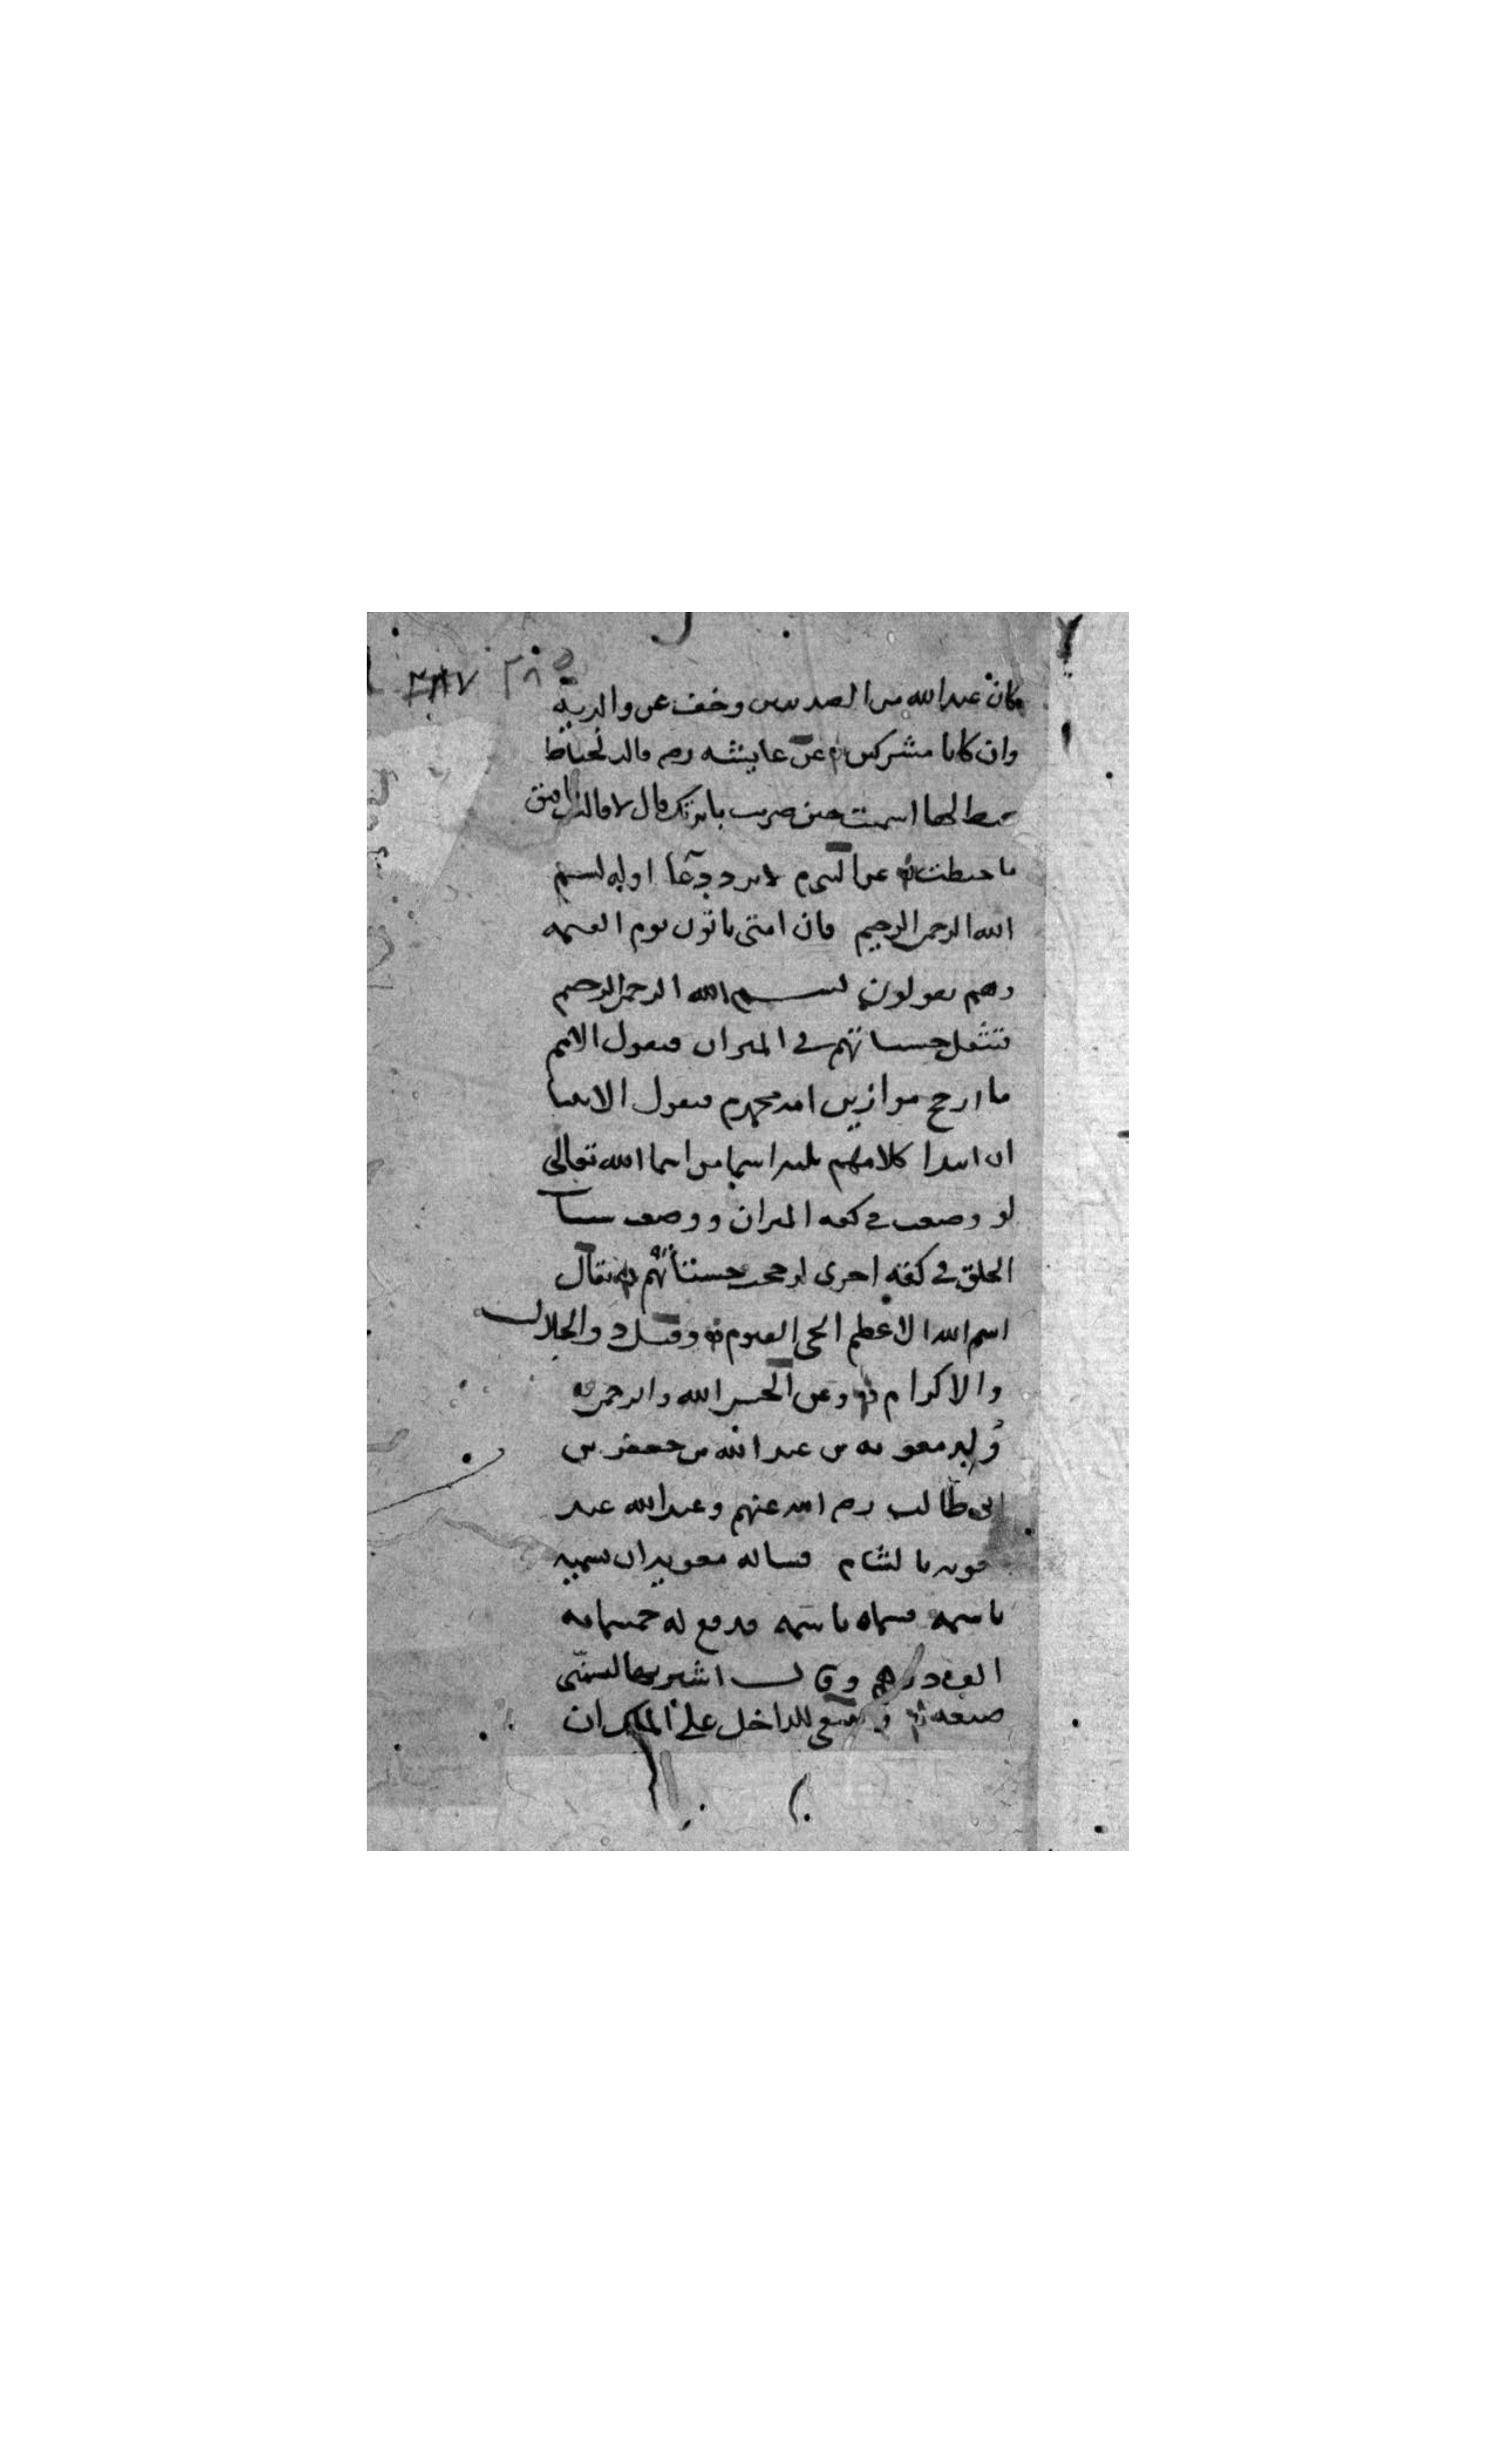 ٣٨٧ ٣٨٥
كان عند الله من الصديقين وخفف عن والديه
وان كانا مشركين عن عايشه رضي قالت لخياط
يخيط لها اسميت حين ضربت بابرتك قال لا قالت افتق
ما خيطت عن النبي م لا يرد دعا اوله بسم
الله الرحمن الرحيم فان امتي ياتون يوم القيمه
وهم يقولون بسم الله الرحمن الرحيم
فتثقل حسناتهم في الميزان فيقول الامم
ما ارجح موازين امه محمد م فيقول الانبيا
ان ابتدا كلامهم ثلثه اسما من اسما الله تعالى
لو وضعت في كفه الميزان ووضعت سيات
الخلق في كفة اخرى لرجحت حسناتهم يقال
اسم الله الاعظم الحي القيوم وقيل ذو الجلال
والاكرام وعن الحسن الله والرحمن
ولد معويه بن عبد الله بن جعفر بن
ابي طالب رضي الله عنهم وعبد الله عند
معويه بالشام فساله معويه ان يسميه
باسمه فسماه باسمه فدفع له خمسمايه
الف درهم وقال اشتر بها لسميي
ضيعه وينبغي للداخل على الملك ان